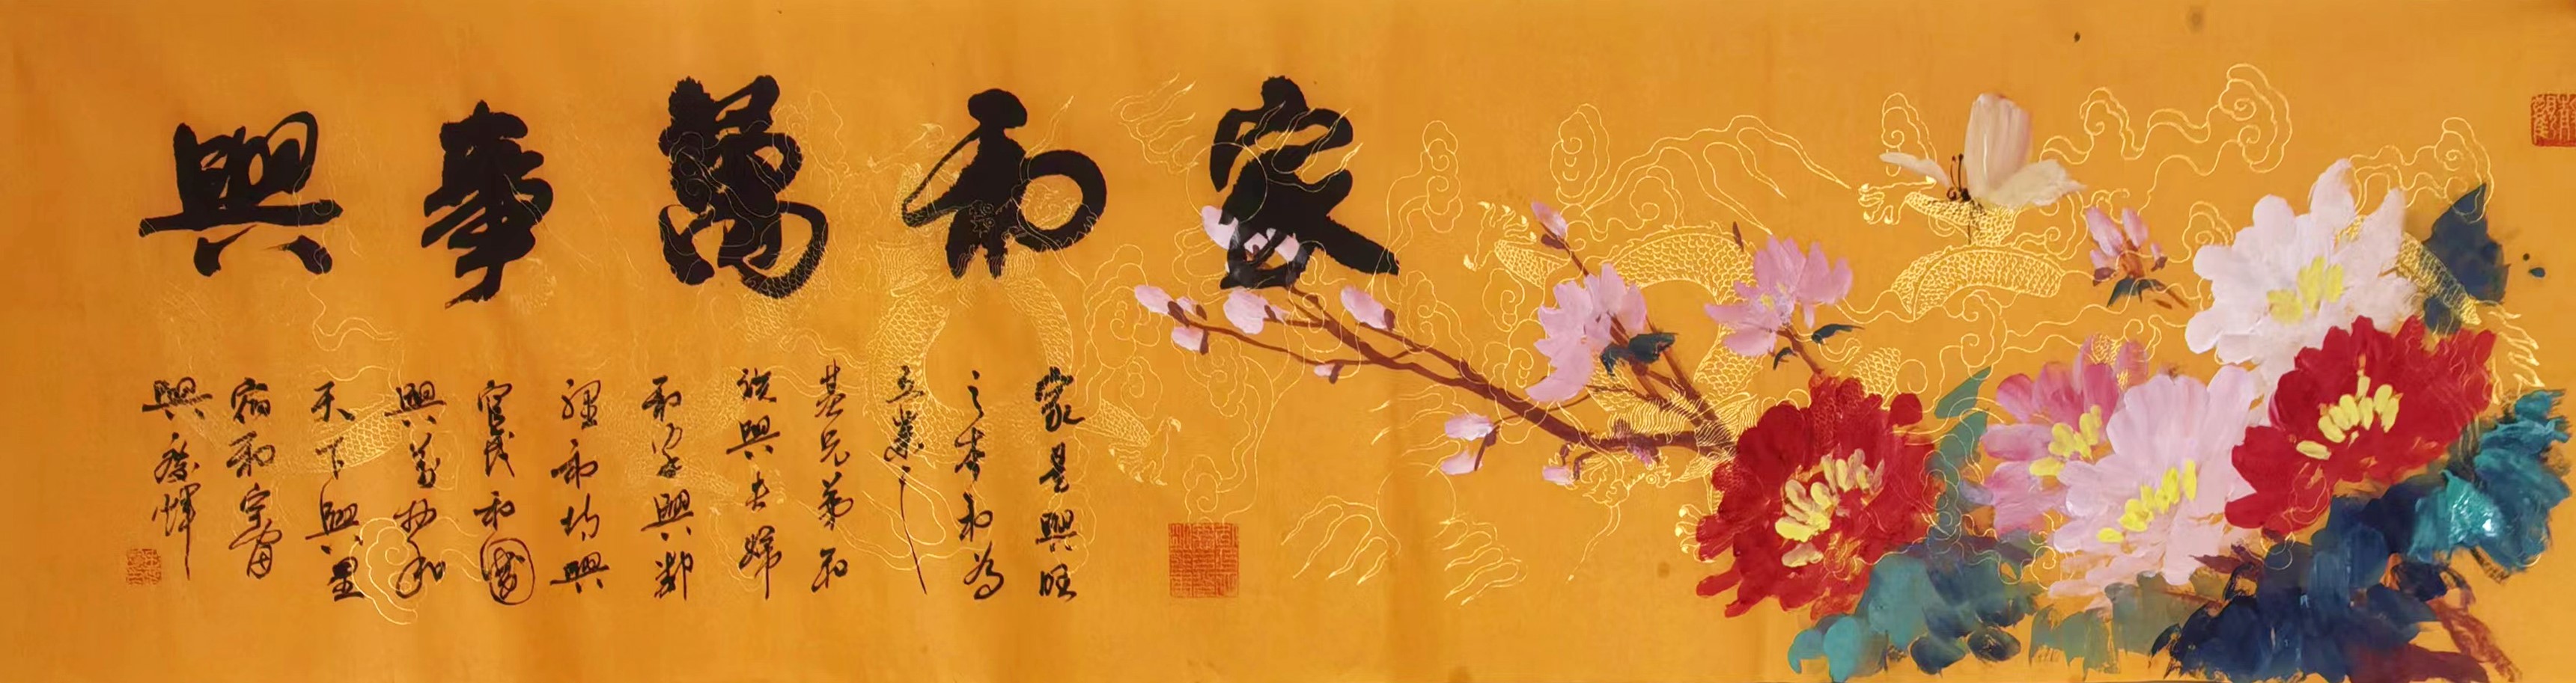 家和萬事興
家是興旺
之本和為
立業之
基兄弟和
族興夫婦
和家興鄰
裡和坊興
官民和國
興萬物和
天下興星
宿和宇宙
興